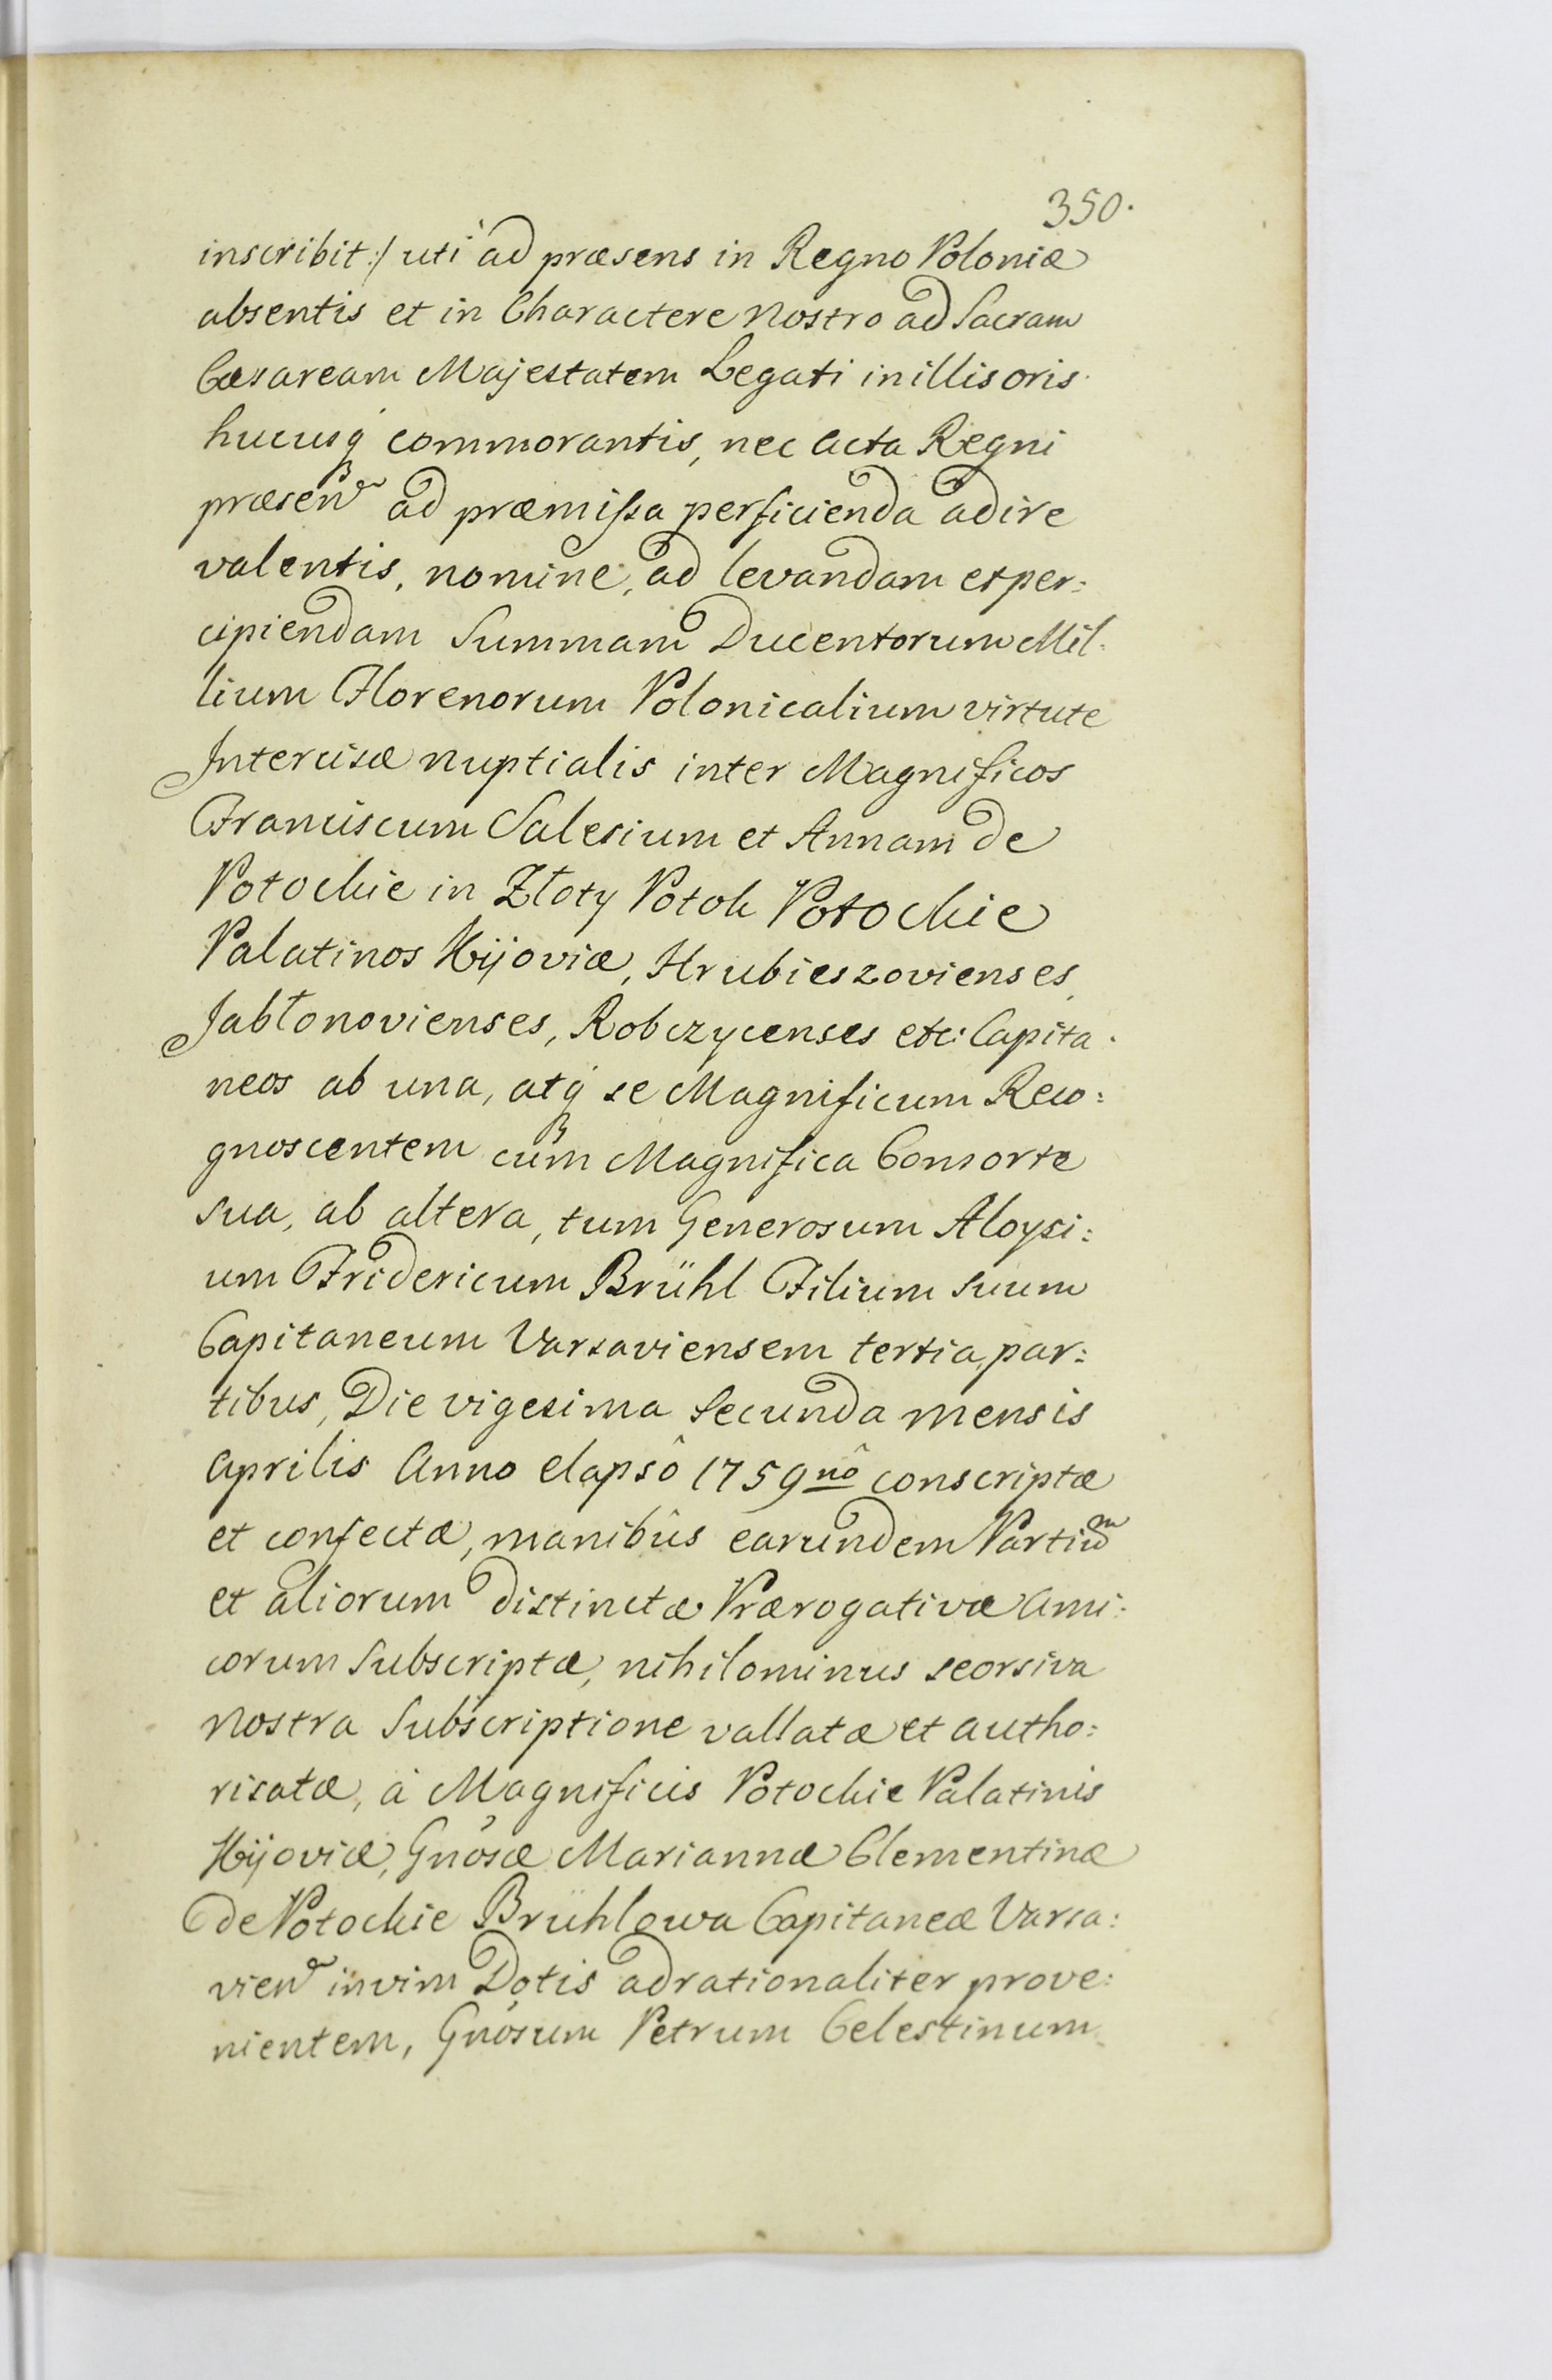 350.
inscribit:/ uti ad præsens in Regno Poloniæ
absentis et in Charactere Nostro ad Sacram
Cæsaream Majestatem Legati in illis oris
hucusq́ commorantis, nec Acta Regni
præsen̄ ad præmissa perficienda adire
valentis, nomine, ad levandam et per:
cipiendam Summam Ducentorum Mil:
lium Florenorum Polonicalium virtute
Intercisæ nuptialis inter Magnificos
Franciscum Salesium et Annam de
Potockie in Złoty Potok Potockie
Palatinos Kijoviæ, Hrubieszovienses,
Jabłonovienses, Robczycenses etc: Capita:
neos ab una, atq́ se Magnificum Reco:
gnoscentem cum Magnifica Consorte
sua, ab altera, tum Generosum Aloysi:
um Fridericum Brühl Filium suum
Capitaneum Varsaviensem tertia, par:
tibus, Die vigesima Secunda mensis
Aprilis Anno elapsô 1759nô conscriptæ
et confectæ, manibus earundem Partium
et aliorum distinctæ Prærogativæ Ami:
corum Subscriptæ, nihilominus seorsiva
Nostra Subscriptione vallatæ et autho:
risatæ, à Magnificis Potockie Palatinis
Kijoviæ, Gnosæ Mariannæ Clementinæ
de Potockie Brühlowa Capitaneæ Varsa:
vien̄ in vim Dotis adrationaliter prove:
nientem, Gnosum Petrum Celestinum